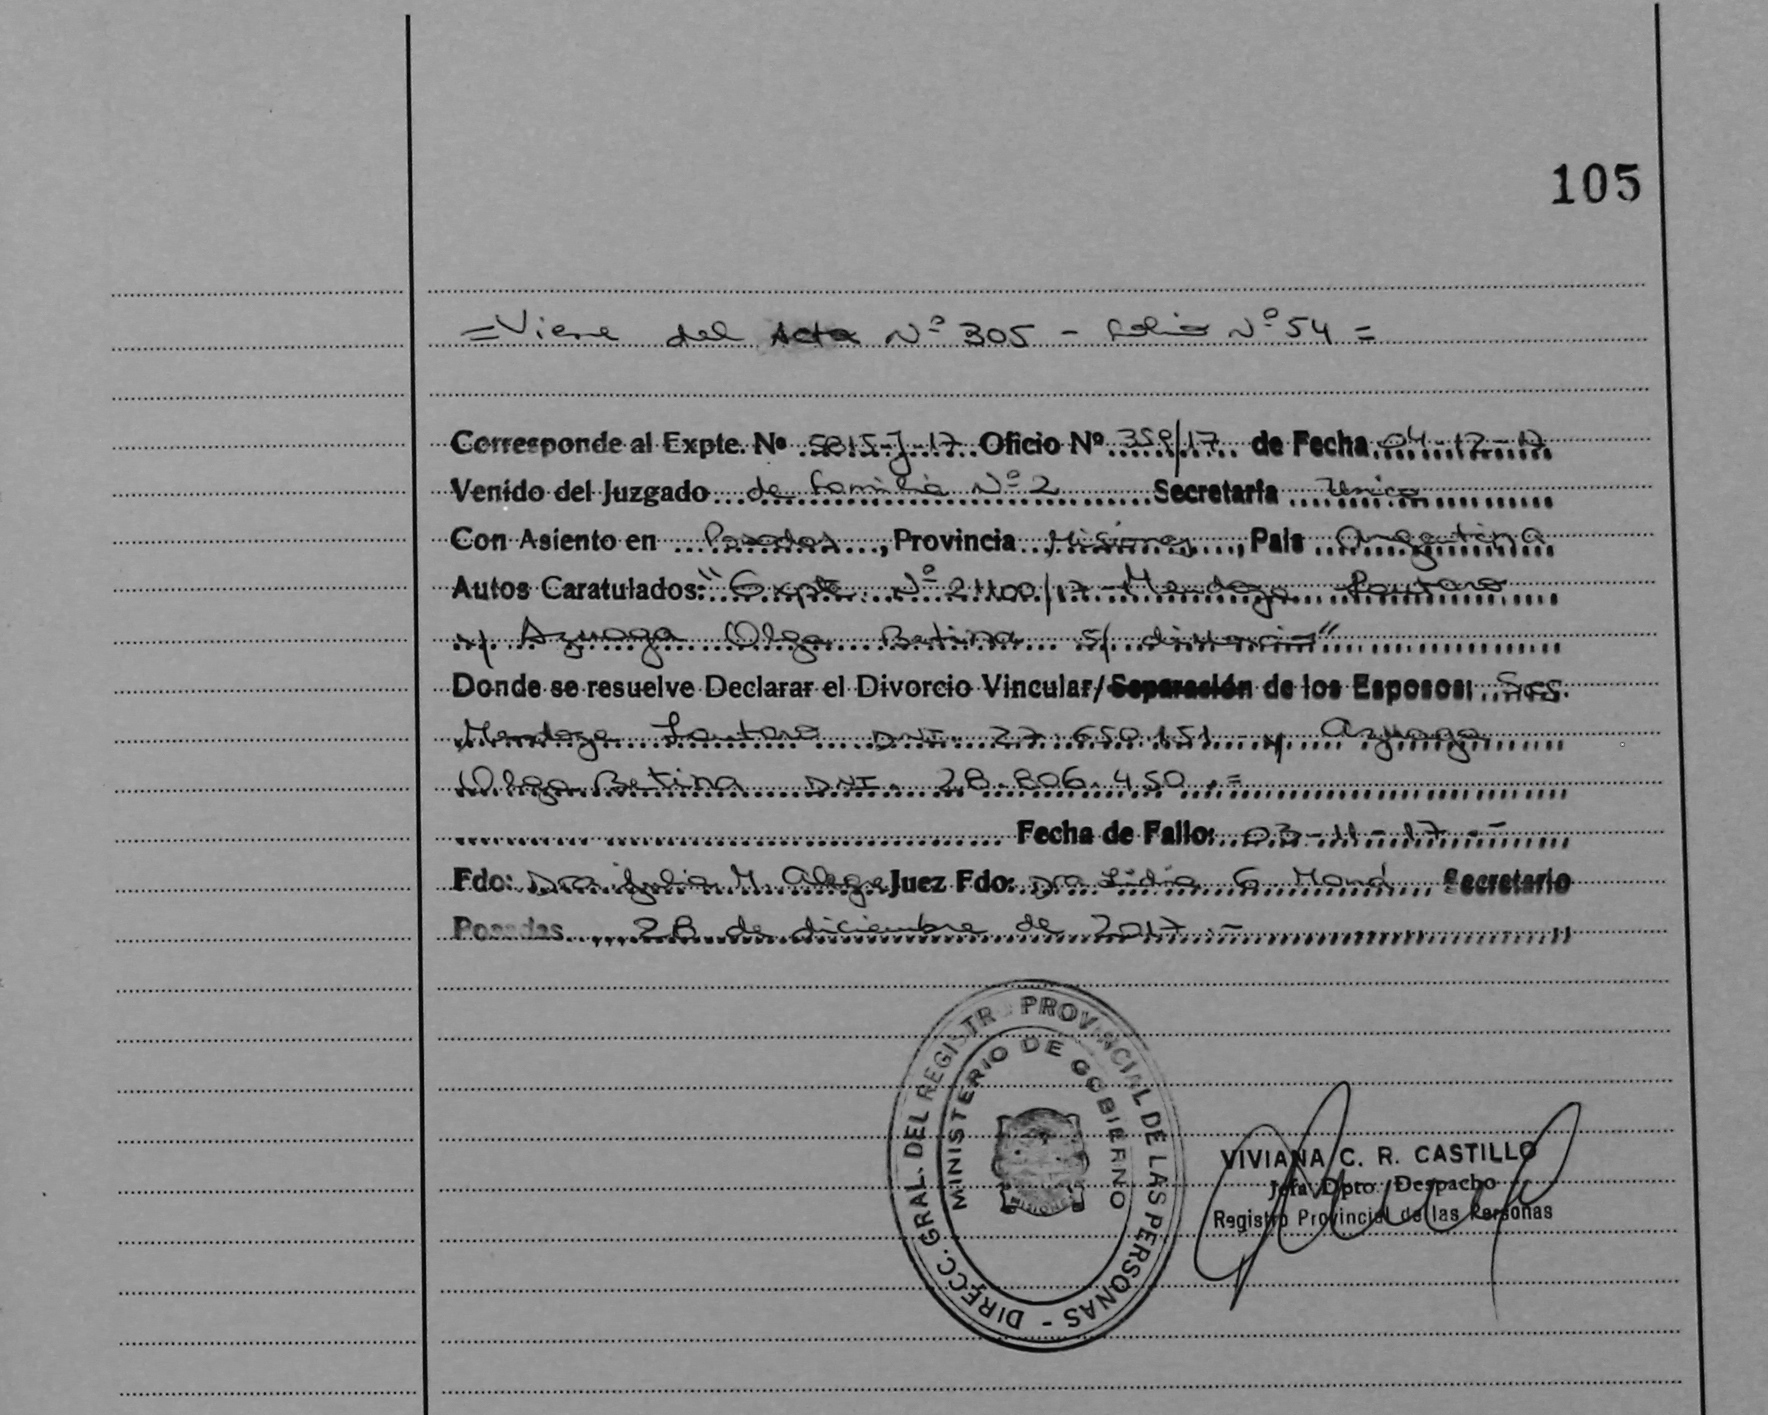 105
=Viene del Acta Nº 305 - folio Nº 54 =
Corresponde al Expte. Nº 5815-J-17 Oficio Nº 359/17 de Fecha 04-12-17
Venido del Juzgado de Familia Nº 2 Secretaria Unica
Con Asiento en Posadas, Provincia Misiones, Pais Argentina
Autos Caratulados: "Expte Nº 21100/17 - Mendoza Lautaro
y/ Azuaga Olga Betina s/ divorcio"
Donde se resuelve Declarar el Divorcio Vincular/Separación de los Esposos: Sres.
Mendoza Lautaro DNI. 27.650.151 y Azuaga
Olga Betina DNI. 28.806.450.=
Fecha de Fallo: 03-11-17.-
Fdo: Dra Julia M. Alege Juez Fdo: Dra Lidia G Secretario
Posadas, 28 de diciembre de 2017.-
DIRECC. GRAL. DEL REGISTRO PROVINCIAL DE LAS PERSONAS -
MINISTERIO DE GOBIERNO
MISIONES
VIVIANA C. R. CASTILLO
Jefa Dpto. Despacho
Registro Provincial de las Personas